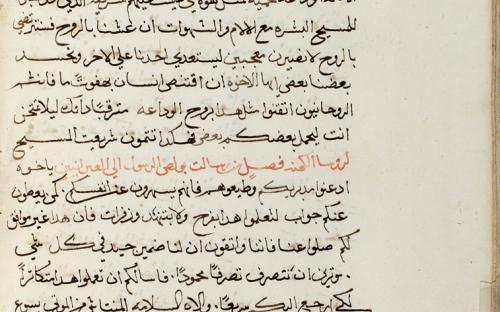 للمسيح البشره مع الالام والشهوات ان عشنا بالروح فسنرتضي
بالروح لا نصيرن معجبين ليستعدي احدنا علي الاخر ونحسد
بعضنا بعض ايها الاخوه ان اقتنص انسان بهفوت ما فانتم
الروحانيون اتقنوا مثل هذا بروح الوداعه مترقبا ذاتك ليلا تمتحن
انت ليحمل بعضكم بعض فهكذا تتمون شريعت المسيح
لروسا الكهنه فصل من رسالت بولص الرسول الي العبرانيين ياخوه
اذعنوا مدبريكم وطيعوهم فانهم يسهرون عن انفسكم كمن يعطون
عنكم جواب لتعلموا هذا بفرح ولا بتنهد وزفرات فان هذا غير موافق
لكم صلوا عنا فاننا واتقون ان لنا ضمير جيد في كل شي
موترين ان نتصرف تصرفا محمودا فاسالكم ان تعملوا هذا متكاثرا
لكي ارجع اليكم سريعا والاه السلامه من الموتي يسوع